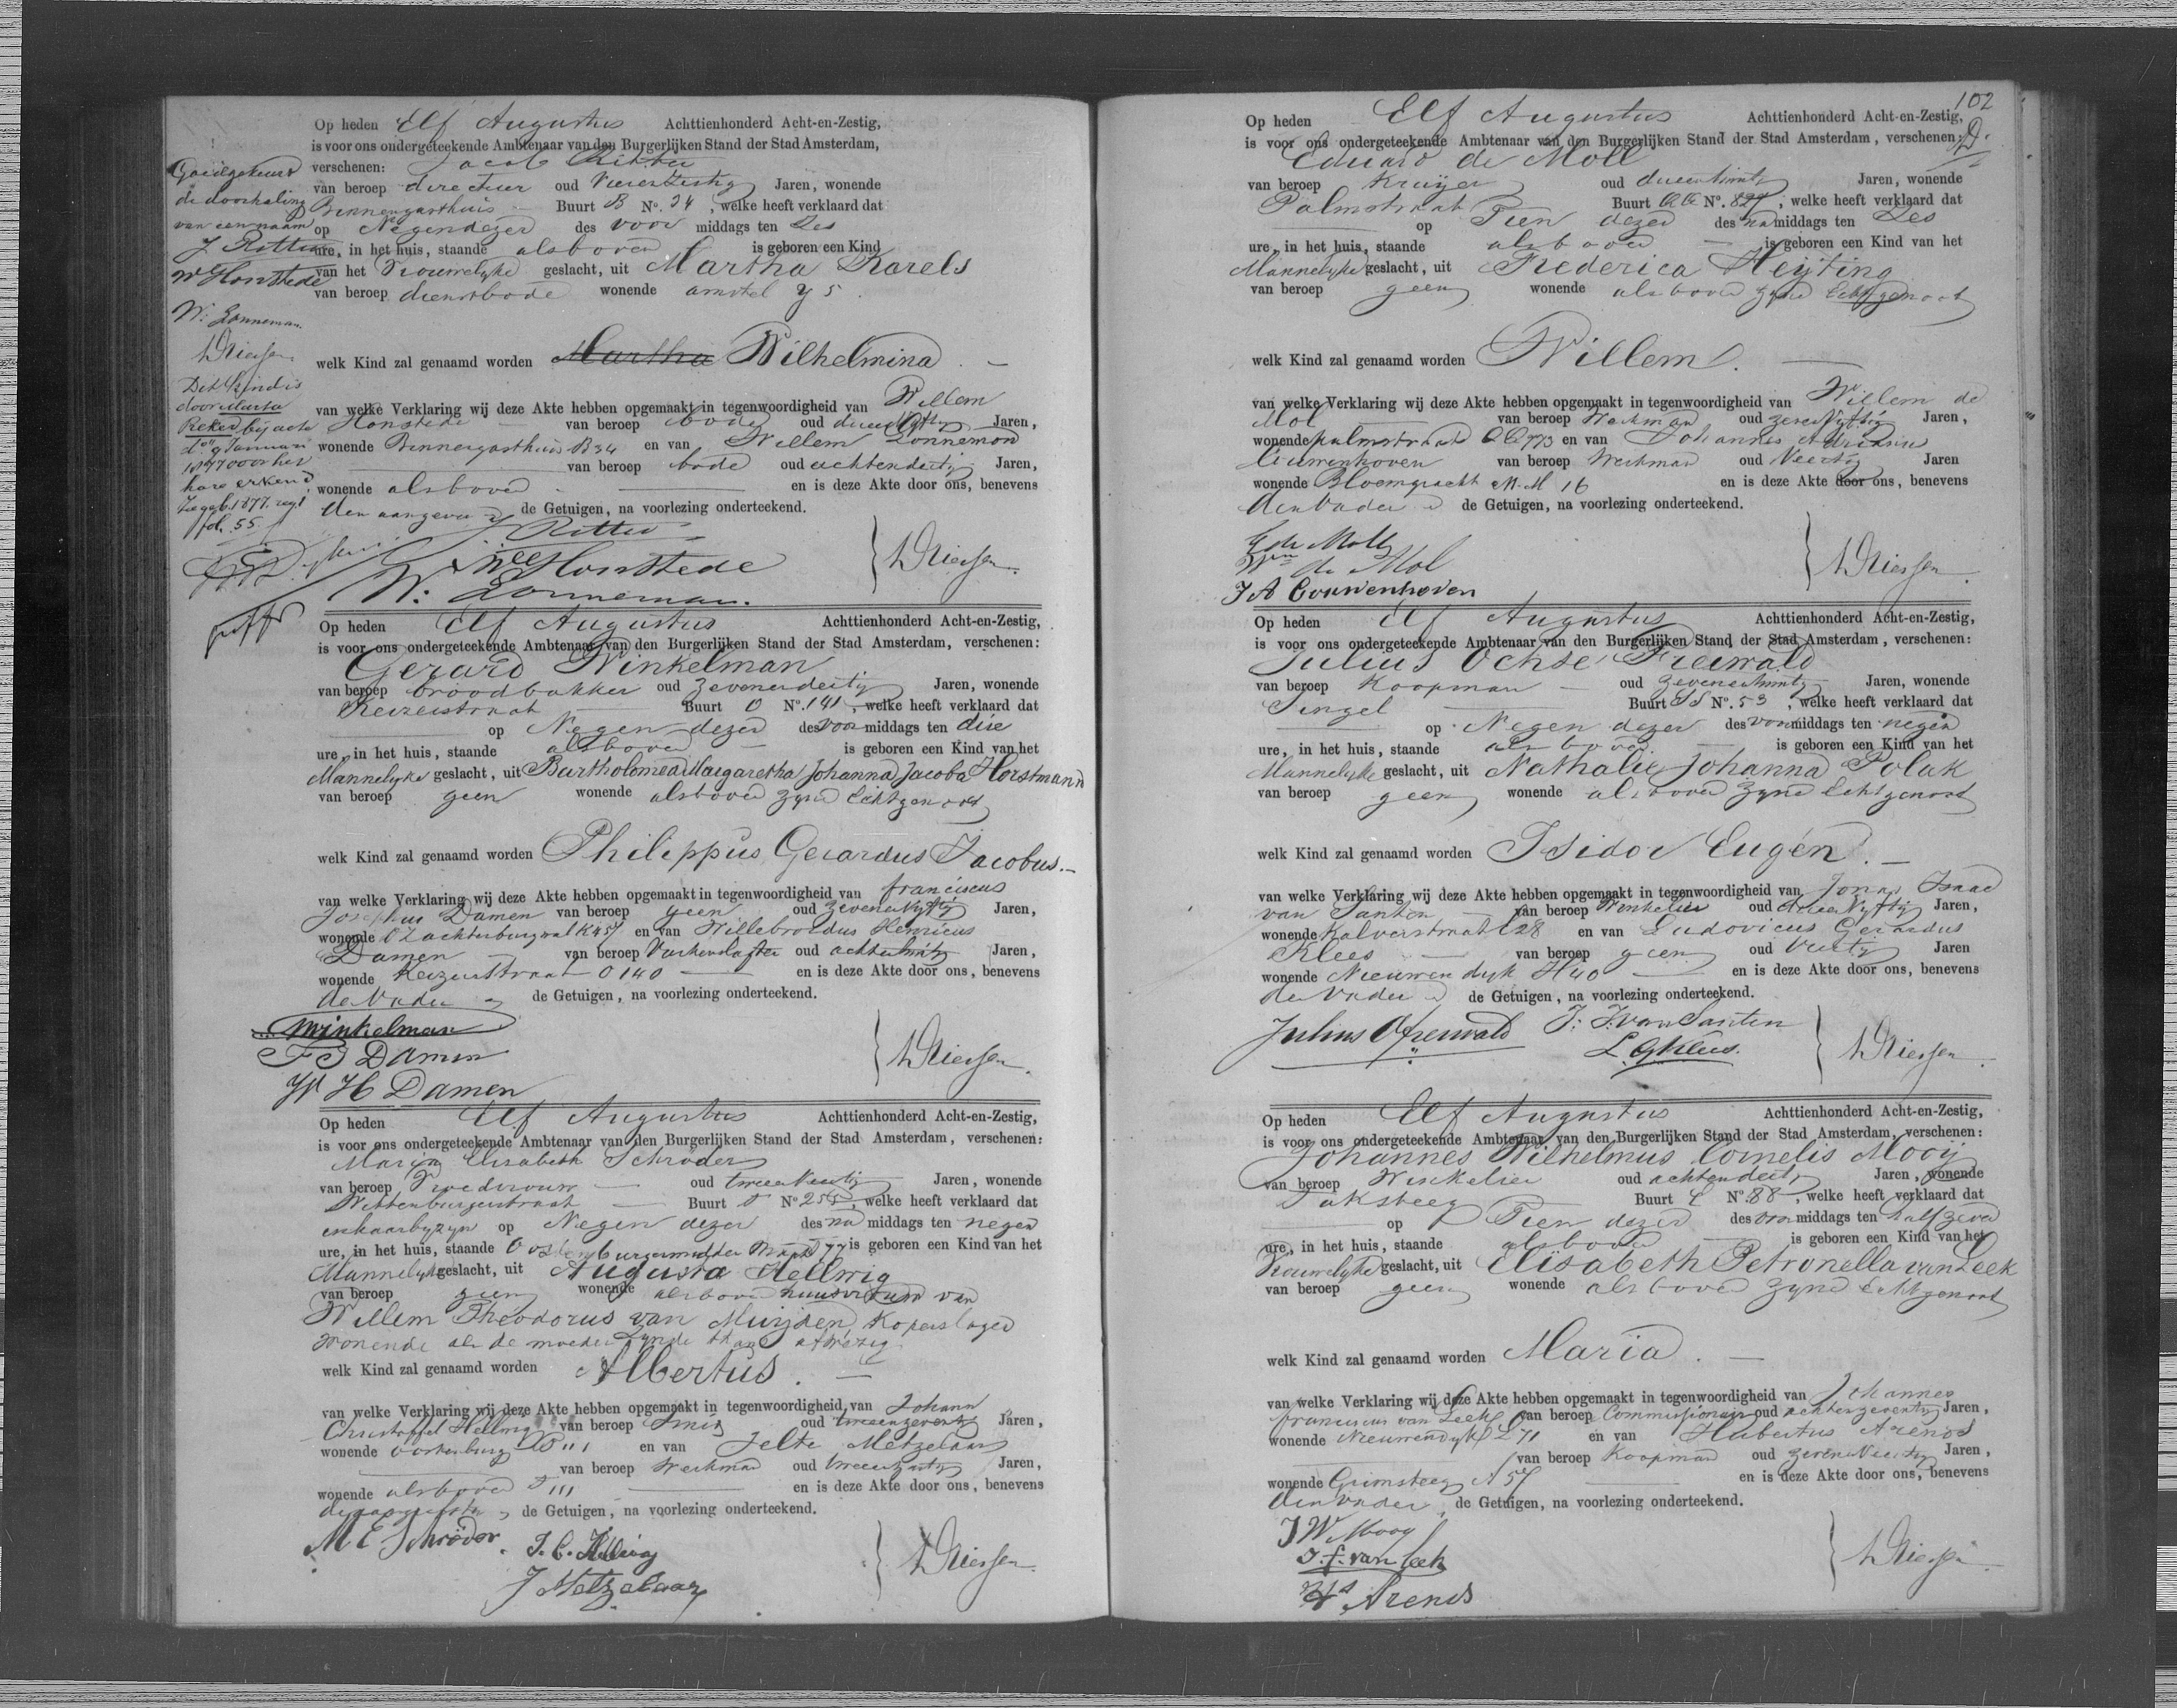 Op heden Elf Augustus Achttienhonderd Acht-en-Zestig,
is voor ons ondergeteekende Ambtenaar van den Burgerlijken Stand der Stad Amsterdam,
verschenen: Jacob Ritter
van beroep directeur oud Vierenzestig Jaren, wonende
Binnengasthuis Buurt B No. 34, welke heeft verklaard dat
op Negen dezer des voor middags ten Zes
ure, in het huis, staande als boven is geboren een Kind
van het Vrouwelyke geslacht, uit Martha Karels
van beroep dienstbode wonende amstel Y 5
welk Kind zal genaamd worden Martha Wilhelmina. —
van welke Verklaring wij deze Akte hebben opgemaakt in tegenwoordigheid van Willem
Honstede van beroep bode oud Jaren,
wonende Binnengasthuis B 34 en van Willem Zonneman
van beroep bode oud achtendertig Jaren,
wonende als boven en is deze Akte door ons, benevens
den aangever de Getuigen, na voorlezing onderteekend.
J Ritter
W Honstede
W: Zonneman.
Goedgekeurd
de doorhaling
van een naam
J Ritter
W Honstede
W: Zonneman.
Dit kind is
door Marta
bij acte
9 Januari
1877 voor het
hare erkend
1877. reg 1
fol. 55.
Op heden Elf Augustus Achttienhonderd Acht-en-Zestig,
is voor ons ondergeteekende Ambtenaar van den Burgerlijken Stand der Stad Amsterdam, verschenen:
Gerard Winkelman
van beroep broodbakker oud zevenendertig Jaren, wonende
Keizerstraat Buurt O No. 141, welke heeft verklaard dat
op Negen dezer des voor middags ten drie
ure, in het huis, staande als boven is geboren een Kind van het
Mannelyke geslacht, uit Bartholomea Margaretha Johanna Jacoba Horstmann
van beroep geen wonende als boven zyne Echtgenoot
welk Kind zal genaamd worden Philippus Gerardus Jacobus. —
van welke Verklaring wij deze Akte hebben opgemaakt in tegenwoordigheid van Franciscus
Josephus Damen van beroep geen oud zevenenvyftig Jaren,
wonende OZ achterburgwal K 457 en van Willebrordus Henricus
Damen van beroep oud achtentwintig Jaren,
wonende Keizerstraat O 140 en is deze Akte door ons, benevens
de Vader de Getuigen, na voorlezing onderteekend.
Winkelman
F J Damen
W H Damen
Op heden Elf Augustus Achttienhonderd Acht-en-Zestig,
is voor ons ondergeteekende Ambtenaar van den Burgerlijken Stand der Stad Amsterdam, verschenen:
Maria Elisabeth Schröder
van beroep Vroedvrouw oud Jaren, wonende
Wittenburgerstraat Buurt No 255, welke heeft verklaard dat
in haar byzyn op Negen dezer des na middags ten negen
ure, in het huis, staande Oostenburgermiddenstraat 77 is geboren een Kind van het
Mannelyk geslacht, uit Augusta Hellwig
van beroep geen wonende als boven huisvrouw van
Willem Theodorus van Muijden Koperslager
wonende als de moeder zynde thans afwezig
welk Kind zal genaamd worden Albertus. —
van welke Verklaring wij deze Akte hebben opgemaakt in tegenwoordigheid van Johann
Christoffel Hellwig van beroep Smid oud tweeenzeventig Jaren,
wonende Oostenburg en van Jelte Metzelaar
van beroep Werkman oud Jaren,
wonende als boven en is deze Akte door ons, benevens
de aangeefster de Getuigen, na voorlezing onderteekend.
M E Schröder.
J. C. Hellwig
J Metzelaar
102
D.
Op heden Elf Augustus Achttienhonderd Acht-en-Zestig,
is voor ons ondergeteekende Ambtenaar van den Burgerlijken Stand der Stad Amsterdam, verschenen:
Eduard de Moll
van beroep Kruijer oud Jaren, wonende
Palmstraat Buurt QQ No. 827, welke heeft verklaard dat
op Tien dezer des na middags ten Zes
ure, in het huis, staande als boven is geboren een Kind van het
Mannelyke geslacht, uit Frederica Heyting
van beroep geen wonende als boven zyne Echtgenoot
welk Kind zal genaamd worden Willem. —
van welke Verklaring wij deze Akte hebben opgemaakt in tegenwoordigheid van Willem de
Mol van beroep Werkman oud zevenenvyftig Jaren,
wonende palmstraat QQ 773 en van Johannes Adrianus
Couwenhoven van beroep Werkman oud Veertig Jaren
wonende Bloemgracht M.M 16 en is deze Akte door ons, benevens
den Vader de Getuigen, na voorlezing onderteekend.
E de Moll
Wm de Mol
J A Couwenhoven
Op heden Elf Augustus Achttienhonderd Acht-en-Zestig,
is voor ons ondergeteekende Ambtenaar van den Burgerlijken Stand der Stad Amsterdam, verschenen:
Julius Ochse Freiwald
van beroep Koopman oud zevenentwintig Jaren, wonende
Singel Buurt SS No. 53, welke heeft verklaard dat
op Negen dezer des voormiddags ten negen
ure, in het huis, staande als boven is geboren een Kind van het
Mannelyke geslacht, uit Nathalie Johanna Polak
van beroep geen wonende als boven zyne Echtgenoot
welk Kind zal genaamd worden Isidor Eugén. —
van welke Verklaring wij deze Akte hebben opgemaakt in tegenwoordigheid van Jonas Isaac
van Santen van beroep Winkelier oud Jaren,
wonende Kalverstraat E 28 en van Ludovicus Gerardus
Klees van beroep geen oud Veertig Jaren
wonende Nieuwendyk H 40 en is deze Akte door ons, benevens
den Vader de Getuigen, na voorlezing onderteekend.
Julius OFreiwald
J: J: van Santen
L. G Klees.
Op heden Elf Augustus Achttienhonderd Acht-en-Zestig,
is voor ons ondergeteekende Ambtenaar van den Burgerlijken Stand der Stad Amsterdam, verschenen:
Johannes Wilhelmus Cornelis Mooij
van beroep Winkelier oud achtendertig Jaren, wonende
Taksteeg Buurt E No. 88, welke heeft verklaard dat
op Tien dezer des voormiddags ten half zeven
ure, in het huis, staande als boven is geboren een Kind van het
Vrouwelyke geslacht, uit Elisabeth Petronella van Leek
van beroep geen wonende als boven zyne Echtgenoot
welk Kind zal genaamd worden Maria. —
van welke Verklaring wij deze Akte hebben opgemaakt in tegenwoordigheid van Johannes
Franciscus van Leek van beroep Commissionair oud achtenzeventig Jaren,
wonende Nieuwendyk L 71 en van Hubertus Arends
van beroep Koopman oud zevenenveertig Jaren,
wonende Grimsteeg A 57 en is deze Akte door ons, benevens
den Vader de Getuigen, na voorlezing onderteekend.
J W Mooy
J. f. van Leek
Arends